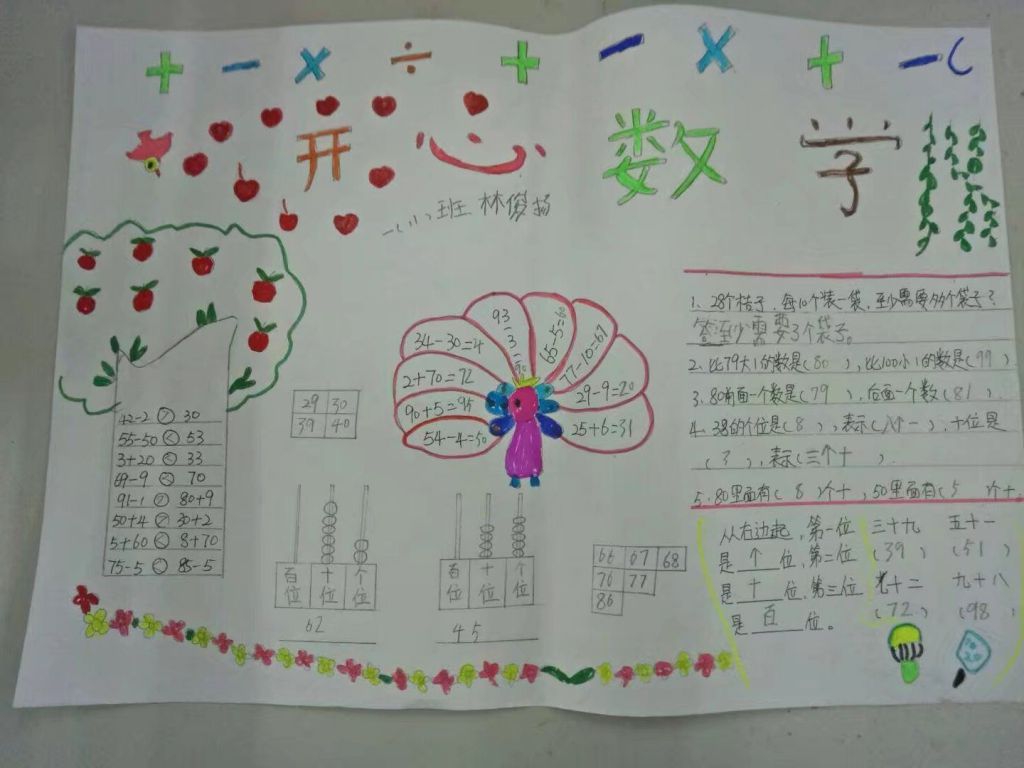 + - × ÷ + - × + -
开心数学
班 林俊扬
42-2 > 30
55-50 < 53
3+20 < 33
69-9 < 70
91-1 > 80+9
50+4 > 30+2
5+60 < 8+70
75-5 < 85-5
29 30
39 40
54-4=50
90+5=95
2+70=72
34-30=4
93-3=90
65-5=60
77-10=67
29-9=20
25+6=31
百位 十位 个位
62
百位 十位 个位
45
66 67 68
76 77
86
1、28个桔子,每10个装一袋,至少需要多少个袋子?
答至少需要3个袋子。
2、比79大1的数是(80),比100小1的数是(99)
3、80前面一个数是(79),后面一个数(81)
4、38的个位是(8),表示(八个一),十位是
(3),表示(三个十).
5、80里面有(8)个十,50里面有(5)个十.
从右边起,第一位
是 个 位,第二位
是 十 位,第三位
是 百 位。
三十九 五十一
(39) (51)
七十二 九十八
(72) (98)